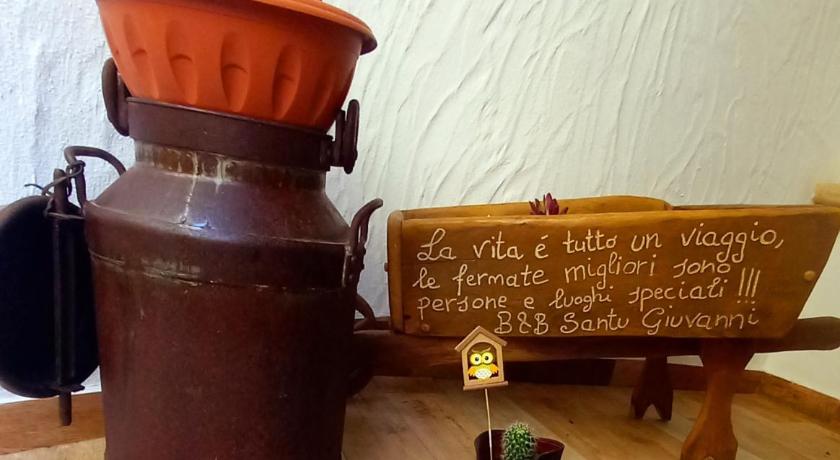 La vita é tutto un viaggio,
le fermate migliori sono
persone e luoghi speciali !!!
B&B Santu Giuvanni